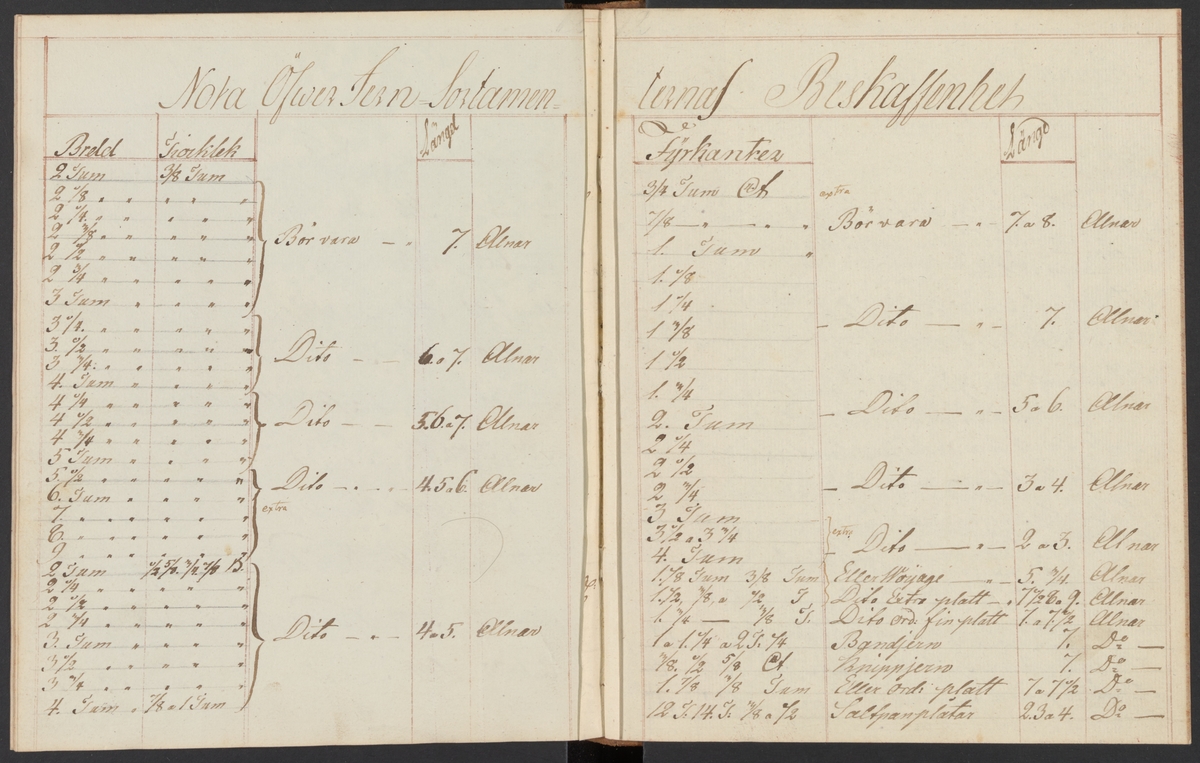 Nota Öfwer Jern-Sortamen-
Bredd Tiocklek Längd
2 Tum 3/8 Tum
2 1/8 " " " " "
2 1/4 " " " " "
2 3/8 " " " " "
2 1/2 " " " " "
Bör vara — " 7. Alnar
2 3/4 " " " " "
3 Tum " " " "
3 1/4 " " " " "
3 1/2 " " " " "
3 3/4 " " " " "
Dito — — 6. a 7. Alnar
4. Tum " " " "
4 1/4 " " " " "
4 1/2 " " " " "
Dito — — 5.6. a 7. Alnar
4 3/4 " " " " "
5 Tum " " " "
5 1/2 " " " " "
6. Tum " " " "
Dito — " " 4.5 a 6. Alnar
7. " " " " " extra
8. " " " " "
9. " " " " "
2 Tum 1/2 5/8 3/4 7/8
2 1/4 " " " " "
2 1/2 " " " " "
2 3/4 " " " " "
3. Tum " " " "
Dito — " — 4 a 5. Alnar
3 1/2 " " " " "
3 3/4 " " " " "
4. Tum " 7/8 a 1 Tum
ternas Beskaffenhet
Fÿrkanter Längd
3/4 Tum extra
7/8 — " — " " Bör vara — " 7. a 8. Alnar
1. Tum "
1. 1/8
1 1/4
Dito — " 7. Alnar
1 3/8
1 1/2
1. 3/4
Dito — " 5 a 6. Alnar
2. Tum
2 1/4
2 1/2
Dito — " 3 a 4. Alnar
2 3/4
3 Tum
3 1/2 a 3 3/4 extra
Dito — " 2 a 3. Alnar
4. Tum
1. 1/8 Tum 3/8 Tum Eller — " 5. 3/4. Alnar
Dito Extra platt — Alnar
1. 3/4 — 3/8 T. Dito Ord. fin platt 7. a 7 1/2 Alnar
1 a 1. 1/4 a 2 T. 1/4 Bandjern 7. Do —
3/8. 1/2 5/8 Knippjern 7. Do —
1. 7/8 Tum Eller Ord: platt 7 a 7 1/2 Do —
12 T. 14. T. 3/8 a 1/2 Saltpanplåtar 2.3 a 4. Do —